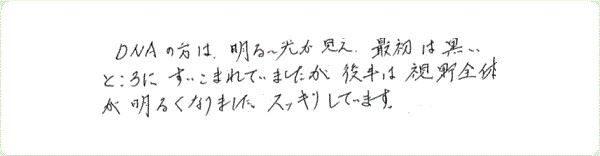 DNAの方は、明るい光が見え、最初は黒い
ところに すいこまれていましたが 後半は 視野全体
が 明るくなりました。スッキリしています。